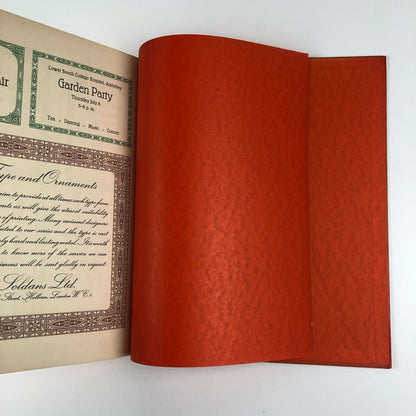 air
Lower Beech Cottage Hospital, Amberley
Garden Party
Thursday July 6
3-6 p.m.
Tea - Dancing - Music - Concert
Type and Ornaments
aim to provide at all times such type faces
ments as will give the utmost suitability
of printing. Many eminent designers
uted to our series and the type is cast
ly hard and lasting metal. It is worth
to know more of the service we can
ecimens will be sent gladly on request.
Soldans Ltd.
Street, Holborn, London W.C.1.